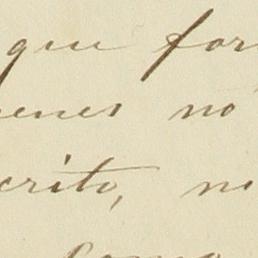 que for
enes no
crito, no
como